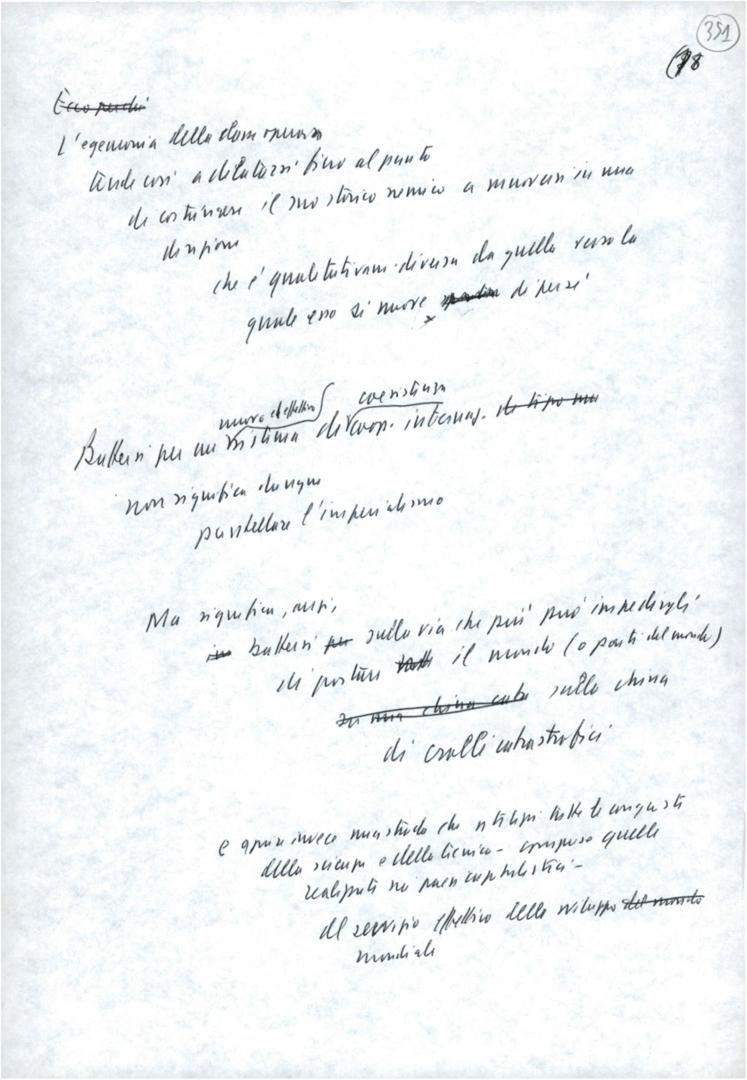 351
(78
Ecco perché
L'egemonia della classe operaia
tende così a dilatarsi fino al punto
di costringere il suo storico nemico a muoversi in una
direzione
che è qualitativam. diversa da quella verso la
quale esso si muove di per sé
nuovo ed effettivo coesistenza
Battersi per un sistema di coop. internaz. di tipo nu
non significa dunque
puntellare l'imperialismo
Ma significa, anzi,
in battersi per sulla via che più può impedirgli
di portare tutti il mondo (o parti del mondo)
su una china cata sulla china
di crolli catastrofici
e aprire invece una strada che utilizzi tutte le conquiste
della scienza e della tecnica - comprese quelle
realizzate nei paesi capitalistici -
al servizio effettivo dello sviluppo del mondo
mondiale